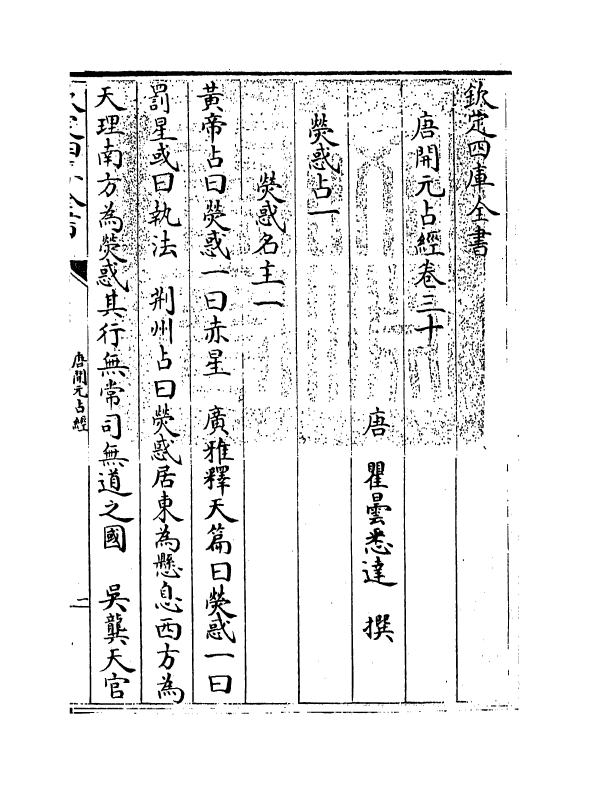 欽定四庫全書
唐開元占經卷三十
唐　瞿曇悉達　撰
熒惑占一
熒惑名主一
黃帝占曰熒惑一曰赤星　廣雅釋天篇曰熒惑一曰
罰星或曰執法　荆州占曰熒惑居東為懸息西方為
天理南方為熒惑其行無常司無道之國　吳龔天官
唐開元占經